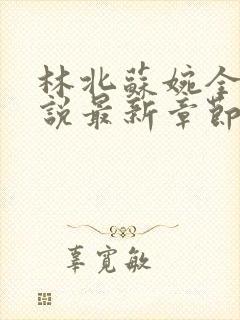 林北蘇婉全
說最新章節
辜寬敏